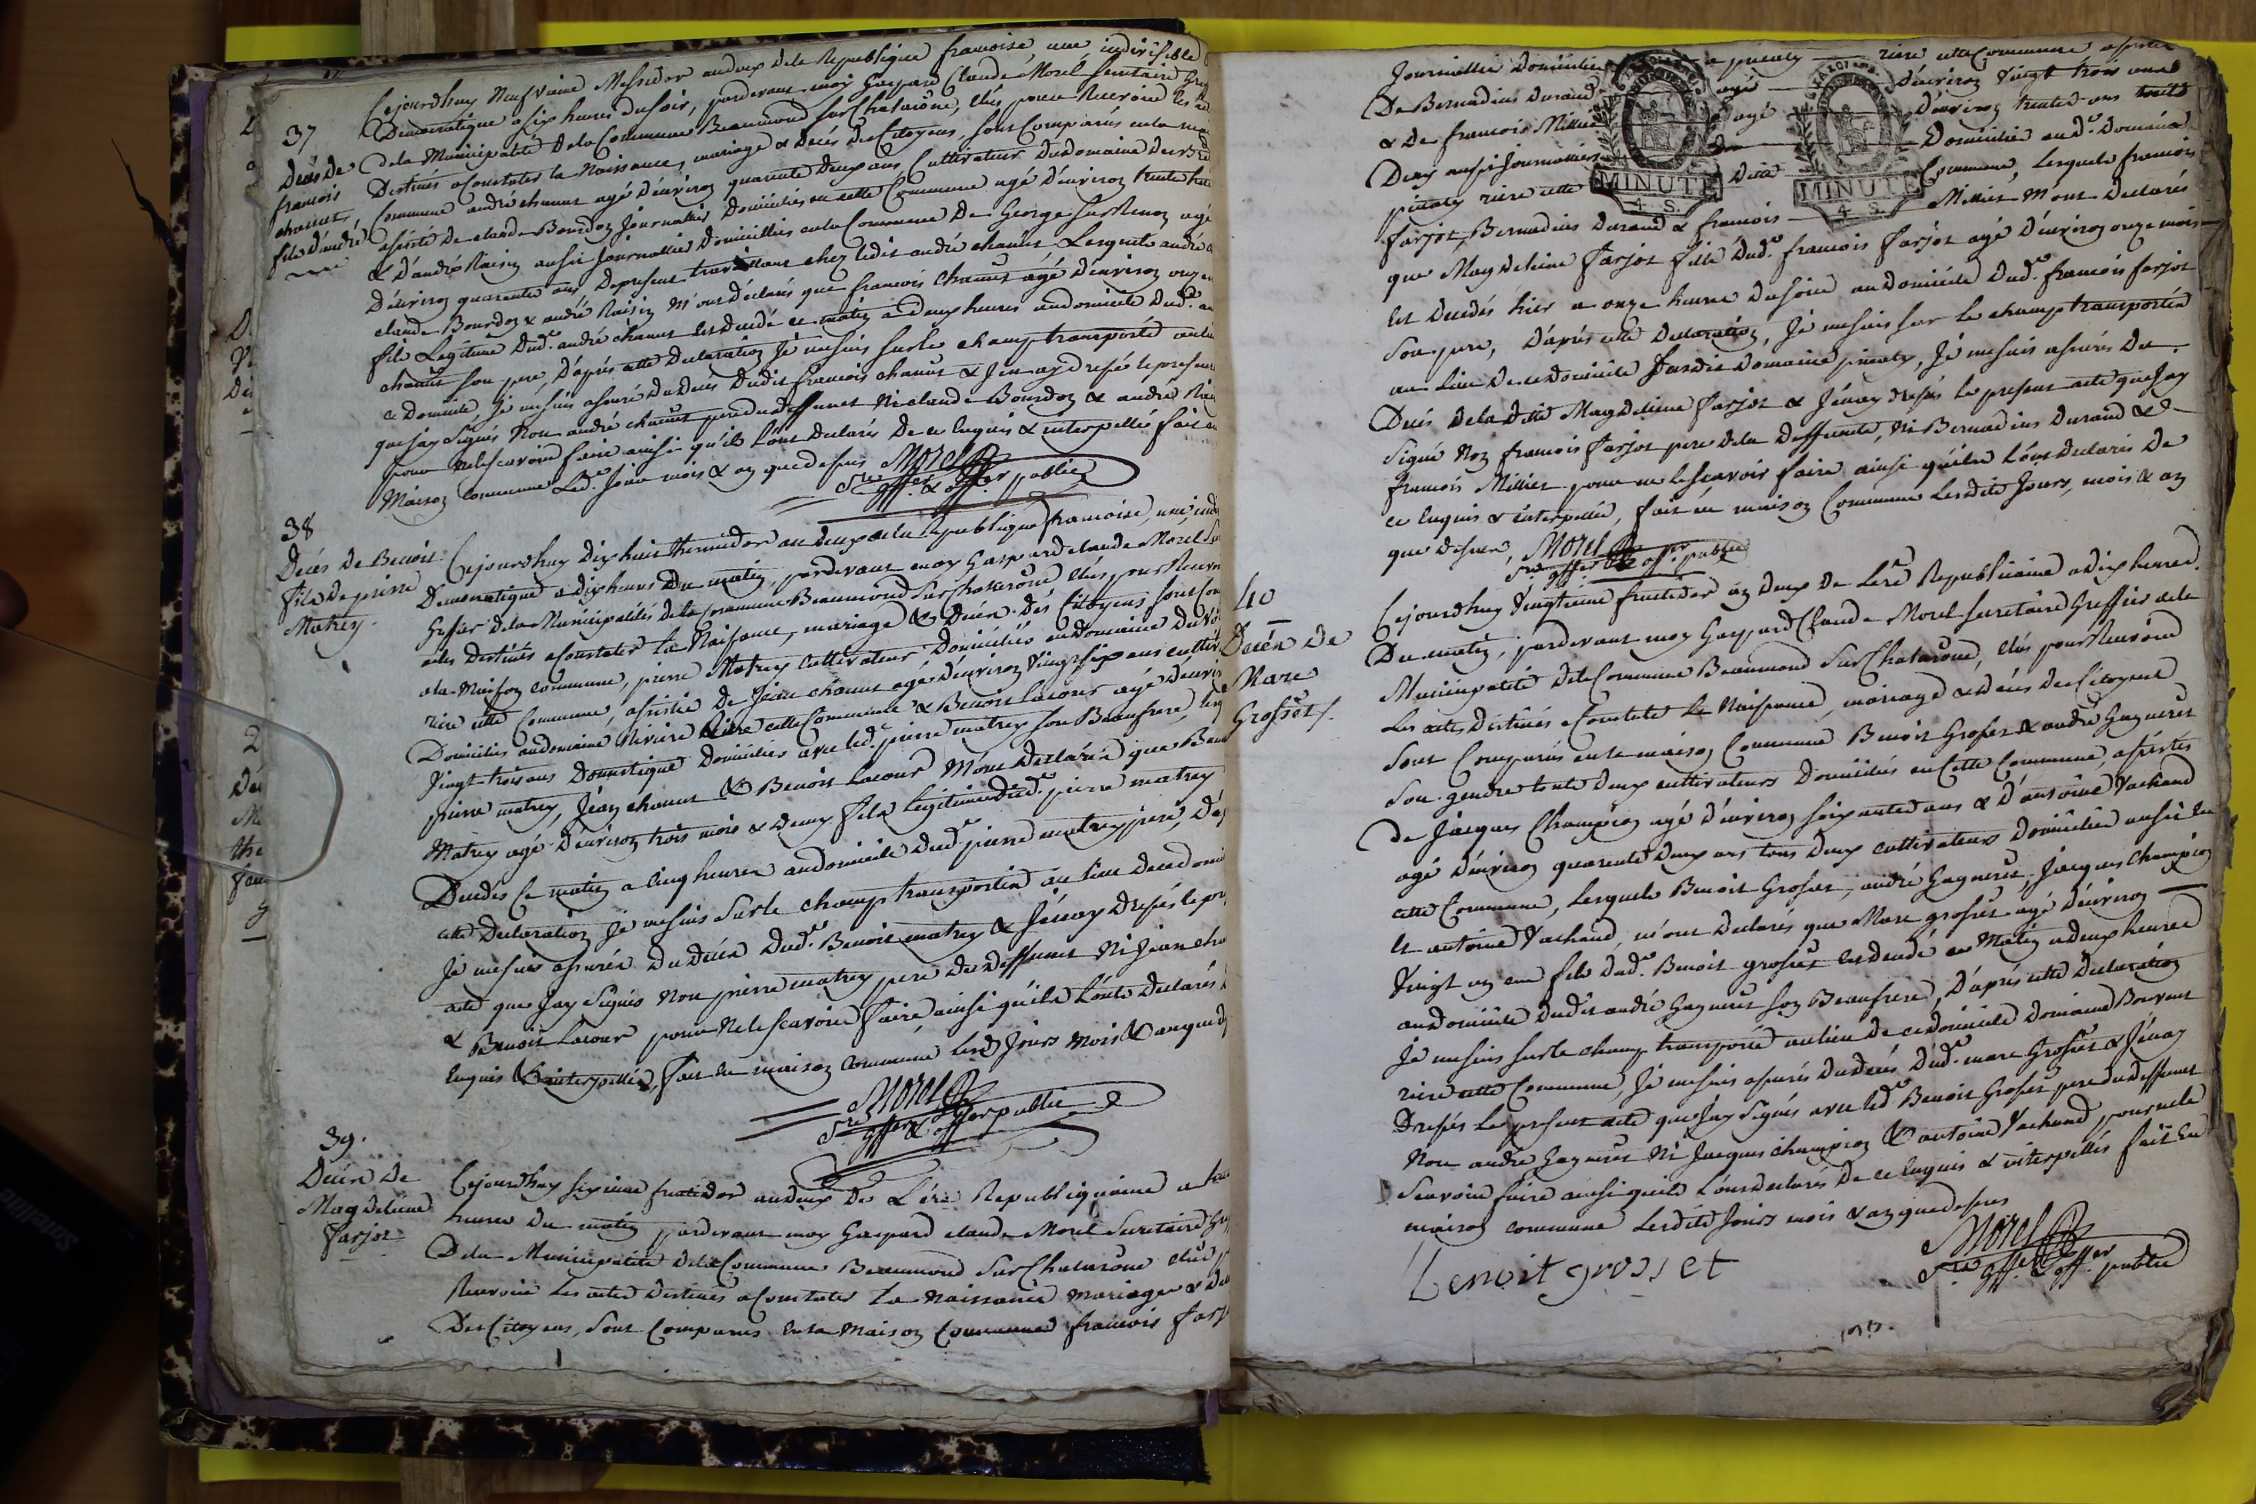 37
Décès de
francois
chanut
fils d'andré
Cejourdhuy Neufvieme Messidor andeux dela Republique francoise, une, indivisible
Democratique a six heures du soir, pardevant moy Gaspard Claude Morel secretaire
dela Municipalité dela Commune Beaumond sur Chalarône, élus pour Recevoir les
Destinés a Constater la Naissance, mariage & Décès des Citoyens, sont Comparús en la
Commune andré chanut agé d'environ quarente deux ans Cultivateur du domaine
assisté de claude Bourdon Journallier domiciliés en cette Commune agé d'environ trente
& d'andré Raisin aussi Journallier domicilliés en la Commune De George sur Renon agé
d'environ quarente ans de present travaillant chez ledit andré chanut Lesquels andré
claude Bourdon & andré Raisin m'ont déclarés que francois chanut agé d'environ onze
fils Legitime dud. andré chanut est decedé ce matin a deux heures au domicile dud.
chanut son pere, D'après cette declaration Je me suis sur le champ transporté au lieu
ce domicile, Je me suis assuré du decès dudit francois chanut & J'en ay dressé le present
que j'ay signés Non andré chanut pere du deffunct Ni claude Bourdon & andré
pour ne le scavoir faire ainsi qu'ils L'ont declarés De ce Enquis & interpellés fait en
Maison commune Led. Jour mois & an que dessus Morel
S.re gffier & offer public
38
Décès de Benoit
fils de pierre
Matrey.
Cejourdhuy Dixhuit thermidor an deux de la Republique francoise, une, ind
Democratique a dix heures Du matin, pardevant moy Gaspard claude Morel
Greffier dela Municipalités dela Commune Beaumond Sur Chalarône élus pour Recevoir
actes Destinés a Constater la Naissance, mariage & Décès Dés Citoyens, sont Com
a la Maison commune, pierre Matrey Cultivateur Domiciliés au Domaine
rière cette Commune, assisté de Jéan chanut agé d'environ Vingt six ans cultiv
Domiciliés au domaine Riviere rière cette Commune & Benoit Lacour agé d'envir
Vingt trois ans Domestique Domiciliés avec led. pierre matrey son Beaufrere,
pierre matrey, Jéan chanut & Benoit Lacour M'ont Declarés que Ben
Matrey agé d'environ trois mois & demy fils legitime dud. pierre matrey
Decedés Ce matin a cinq heures au domicile dud. pierre matrey pere, D'a
cette Declaration Je me suis sur le champ transportés au lieu de ce domi
Je me suis assurés du decès dud. Benoit matrey & J'en ay dressés le pr
acte que Jay Signés Non pierre matrey pere du deffunct Ni Jean cha
& Benoit Lacour pour ne le scavoir faire ainsi qu'ils L'ont declarés
Enquis & interpellés, fait en maison commune lesd. Jours mois & an que d
Morel
S.re gffier & offer public
39.
Décès De
Magdeleine
Farjot
Cejourdhuy sixieme fructidor an deux de L'ére Republiquaine a
heures du matin pardevant moy Gaspard claude Morel Secretaire
Dela Municipalité dela Commune Beaumond Sur Chalarône élus
Recevoir les actes Destinés a Constater la Naissance mariages &
Des Citoyens, sont Comparus en la Maison Commune francois
Journallier Domicilié a pinaty rière cette Commune assisté
De Bernadins durand agé d'environ Vingt trois ans
& De francois Millet agé d'environ trente ans touts
Deux aussi Journalliers Domiciliés aud. Domaine
pinaty rière cette Ditte Commune, Lesquels francois
Farjot, Bernadins Durand & francois Millet M'ont Declarés
MINUTE
4. S.
MINUTE
4. S.
que Magdeleine Farjot fille Dud. francois Farjot agé d'environ onze mois
Est Decedés hier a onze heures du soir au Domicile dud. francois farjot
son pere, D'après cette Declaration, Je me suis sur le champ transportés
au Lieu De ce domicile susdit Domaine pinaty, Je me suis assurés Du
Decès de la ditte Magdelaine Farjot & J'en ay dressés le present acte que Jay
signé Non francois Farjot pere de la Deffuncte, Ni Bernadins Durand &
francois Millet pour ne le scavoir faire ainsi qu'ils L'ont Declarés De
ce Enquis & interpellés, fait en maison Commune Lesdits Jours, mois & an
que dessus, Morel
S.re gffier & offer public
40
Décès De
Marc
Grosset.
Cejourdhuy Vingtieme fructidor an deux De L'ere Republicaine a dix heures
Du matin, pardevant moy Gaspard Claude Morel secretaire Greffier dela
Municipalité dela Commune Beaumond sur Chalarône, élus pour Recevoir
Les actes Destinés a Constater la Naissance, mariage & decès des Citoyens
sont Comparús en la maison Commune Benoit Grosset & andré Gagneret
son gendre touts deux cultivateurs domiciliés en Cette Commune, assistés
de Jacques Champion agé d'environ soixante ans & D'antoine Vachand
agé d'environ quarente deux ans tous deux cultivateurs domiciliés aussi en
cette Commune, Lesquels Benoit Grosset, andré Gagneret, Jacques champion
et antoine Vachand, m'ont declarés que Marc grosset agé d'environ
Vingt un ans fils dud. Benoit grosset est decedé ce Matin a deux heures
au domicile dudit andré Gagneret son Beaufrere, D'après cette declaration
Je me suis sur le champ transporté au lieu de ce domicile domaine Bouvent
rière cette Commune, Je me suis assurés du decès dud. marc Grosset & J'en ay
Dressés Le present acte que Jay Signés avec led. Benoit Grosset pere du deffunct
Non andré Gagneret Ni Jacques champion & antoine Vachand pour ne le
Scavoir faire ainsi qu'ils L'ont declarés De ce Enquis & interpellés fait En
maison commune Lesdits Jours mois & an que dessus
Morel
benoit grosset
S.re gffier & offer public